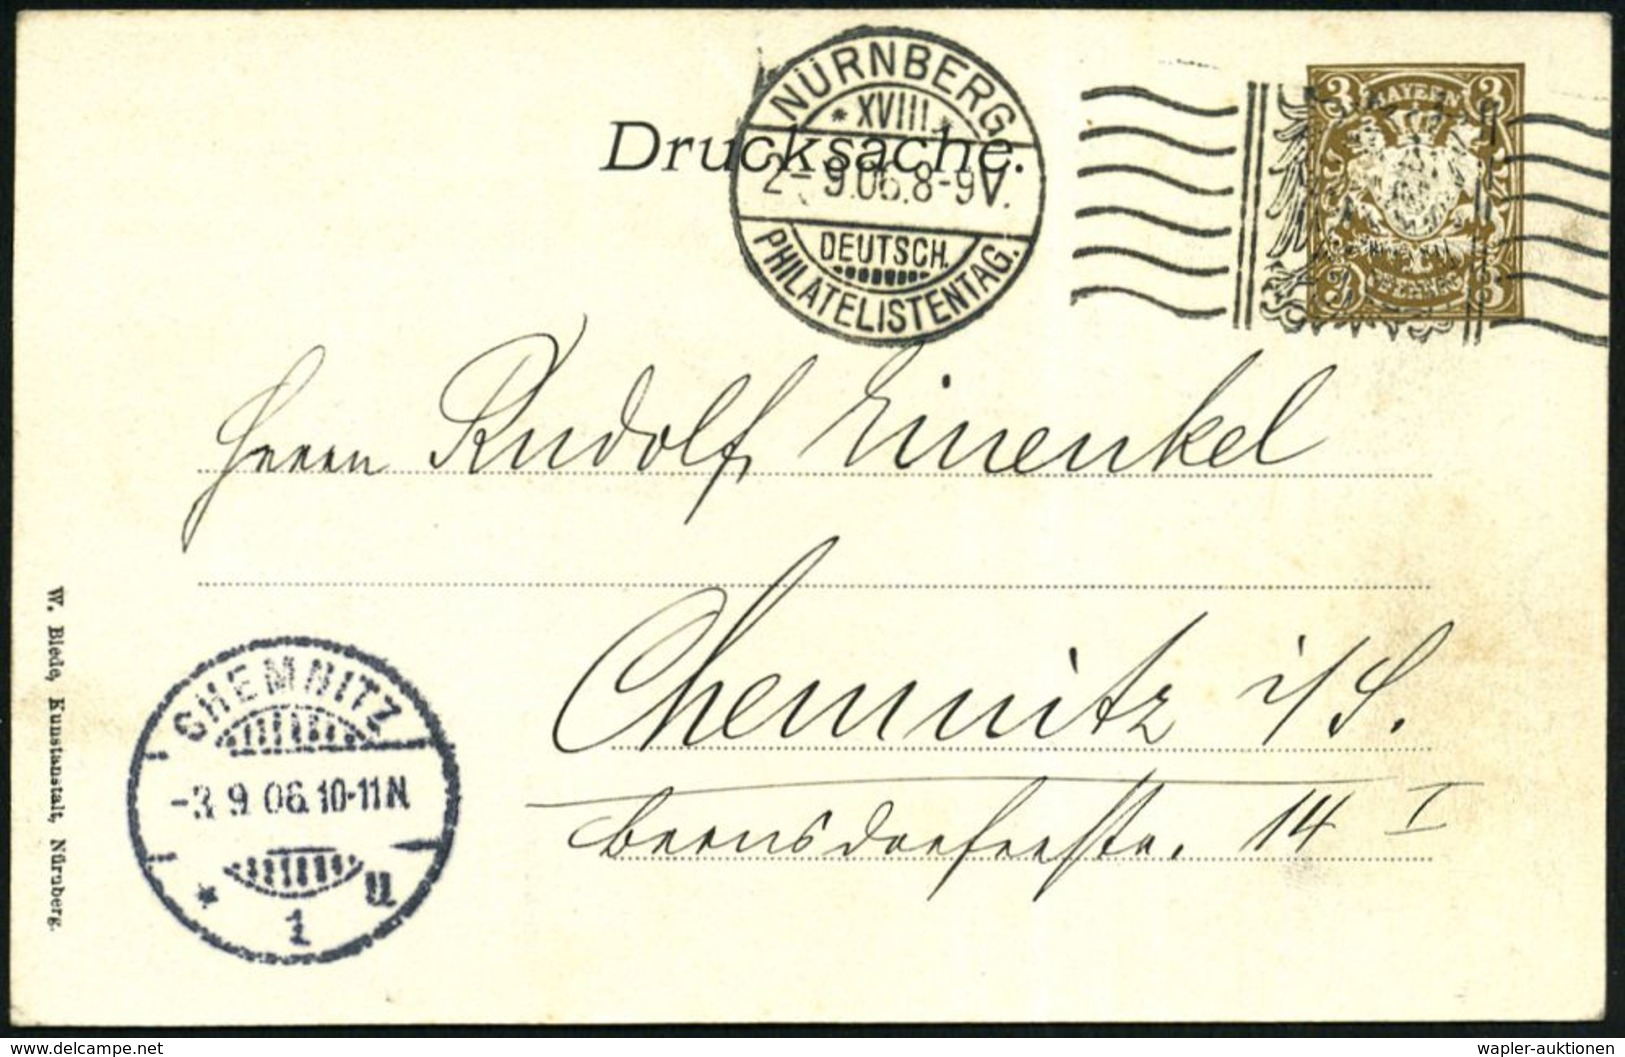 NÜRNBERG.
* XVIII *
2-9.06.8-9V.
DEUTSCH.
PHILATELISTENTAG.
Drucksache.
3 3
BAYERN
3 3
Herrn Rudolf Einenkel
Chemnitz i/S.
Bernsdorferstr. 14 I
CHEMNITZ
-3.9.06.10-11N.
* 1 u
W. Biede, Kunstanstalt, Nürnberg.
www.delcampe.net
wapler-auktionen